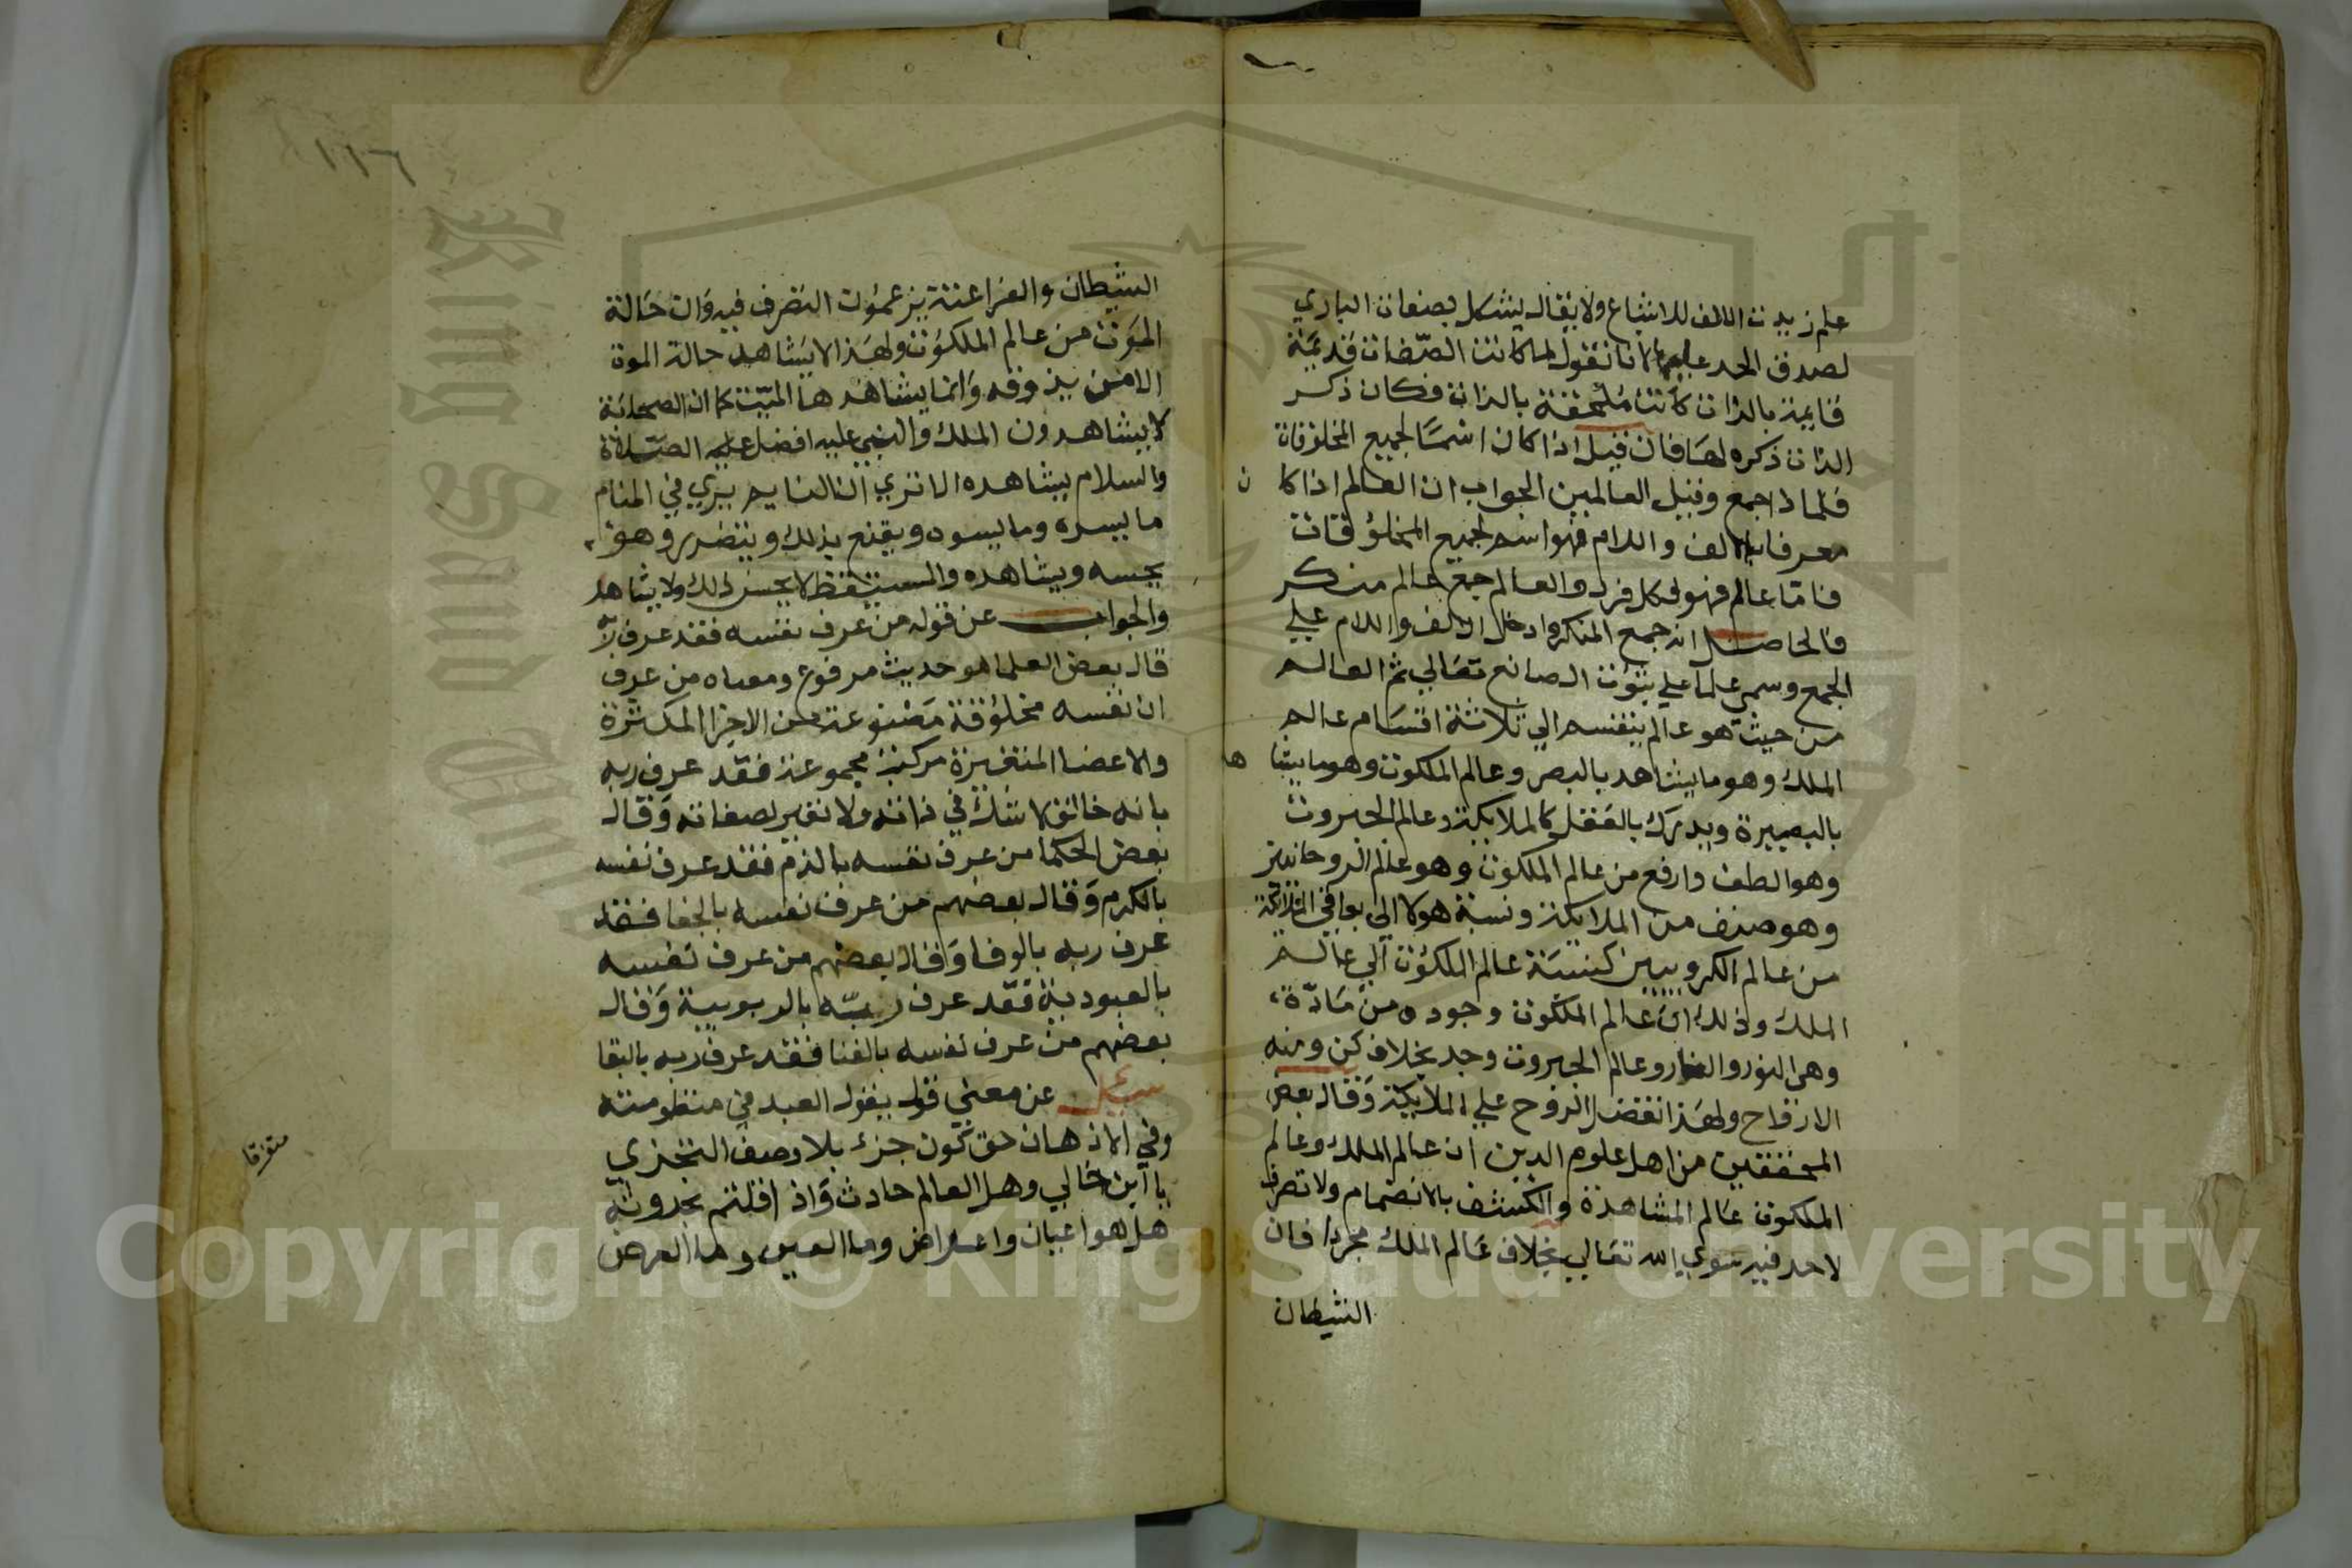 علم زيدت الالف للاشباع ولا يقال يشكل بصفات الباري
لصدق الحد عليها لانا نقول لما كانت الصفات قديمة
قايمة بالذات كانت ملحقة بالذات فكان ذكر
الذات ذكره لها فان قيل اذا كان اسمًا لجميع المخلوقات
فلماذا جمع وقيل العالمين الجواب ان العالم اذا كا ن
معرفا بالالف واللام فهو اسم لجميع المخلوقات
فاما عالم فهو لكل فرد والعالم جمع عالم منكر
فالحاصل انه جمع المنكر وادخل الالف واللام علي
الجمع وسمي علما علي ثبوت الصانع تعالي ثم العالم
من حيث هو عالم ينقسم الي ثلاثة اقسام عالم
الملك وهو ما يشاهد بالبصر وعالم الملكوت وهو ما يشا هد
بالبصيرة ويدرك بالعقل كالملايكة وعالم الجبروت
وهو الطف وارفع من عالم الملكوت وهو عالم الروحانيين
وهو صنف من الملايكة ونسبة هولا الي باقي الملايكة
من عالم الكروبيين كنسبة عالم الملكوت الي عالم
الملك وذلك ان عالم الملكوت وجوده من مادة
وهي النور والنار وعالم الجبروت وجد بخلاف كن ومنه
الارواح ولهذا تفضل الروح علي الملايكة وقال بعض
المحققين من اهل علوم الدين ان عالم الملك وعالم
الملكوت عالم المشاهدة والكشف بالانضمام ولا تصرف
لاحد فيه سوي الله تعالي بخلاف عالم الملك مجردا فان
الشيطان
١١٦
الشيطان والفراعنة يزعمون التصرف فيه وان حالة
الموت من عالم الملكوت ولهذا لا يشاهد حالة الموت
الا من يذوقه وانما يشاهدها الميت كما ان الصحابة
لا يشاهدون الملك والنبي عليه افضل الصلاة
والسلام يشاهده الا تري ان النايم يري في المنام
ما يسره وما يسوه ويقنع بذلك ويتضرر وهو
يحسه ويشاهده والمستيقظ لا يحس ذلك ولا يشاهد
والجواب عن قوله من عرف نفسه فقد عرف ربه
قال بعض العلما هو حديث مرفوع ومعناه من عرف
ان نفسه مخلوقة مصنوعة من الاجزا المكثرة
والاعضا المتغيرة مركبة مجموعة فقد عرف ربه
بانه خالق لا شك في ذاته ولا تغير لصفاته وقال
بعض الحكما من عرف نفسه بالذم فقد عرف نفسه
بالكرم وقال بعضهم من عرف نفسه بالجفا فقد
عرف ربه بالوفا وقال بعضهم من عرف نفسه
بالعبودية فقد عرف ربه بالربوبية وقال
بعضهم من عرف نفسه بالفنا فقد عرف ربه بالبقا
سيل عن معني قول يقول العبد في منظومته
وفي الاذهان حق كون جزء بلا وصف التجزي
يا ابن خالي وهل العالم حادث واذ اقلتم بحدوثه
هل هو اعيان واعراض وما العين وما العرض
متفرقا